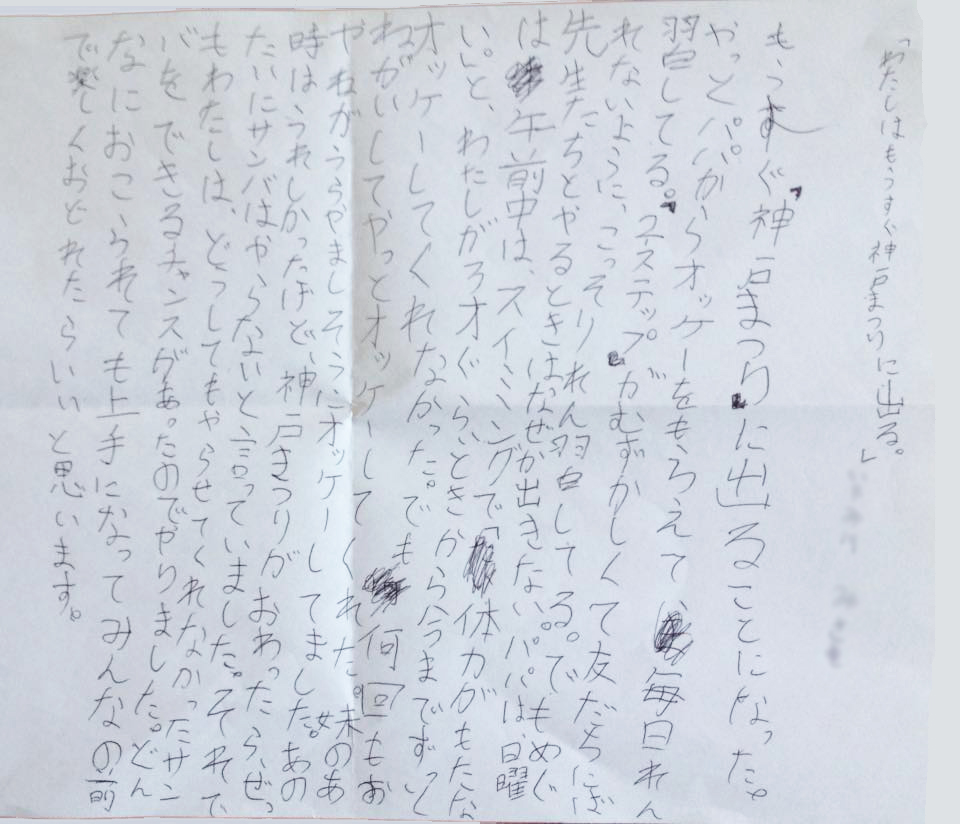 「わたしはもうすぐ神戸まつりに出る。」
もうすぐ「神戸まつり」に出ることになった。
やっとパパからオッケーをもらえて、毎日れん
習してる。「2ステップ」がむずかしくて友だちにば
れないように、こっそりれん習してる。でもめぐ
先生たちとやるときはなぜか出きない。パパは、日曜
は午前中は、スイミングで「体力がもたな
い。」と、わたしが3才ぐらいときから今までずっと
オッケーしてくれなかった。でも何回もお
ねがいしてやっとオッケーしてくれた。妹のあ
やねがうらやましそうにオッケーしてました。あの
時は、うれしかったけど、神戸まつりがおわったら、ぜっ
たいにサンバはやらないと言っていました。それで
もわたしは、どうしてもやらせてくれなかったサン
バをできるチャンスがあったのでやりました。どん
なにおこられても上手になってみんなの前
で楽しくおどれたらいいと思います。